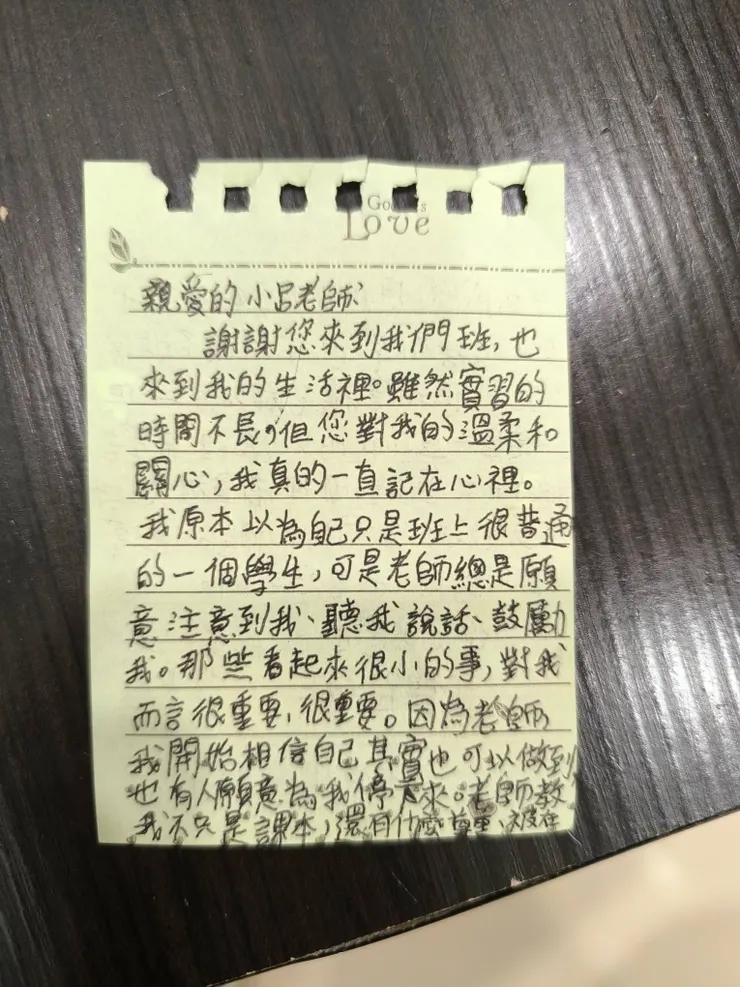 God is
Love
親愛的小呂老師:
謝謝您來到我們班,也
來到我的生活裡。雖然實習的
時間不長,但您對我的溫柔和
關心,我真的一直記在心裡。
我原本以為自己只是班上很普通
的一個學生,可是老師總是願
意注意到我、聽我說話、鼓勵
我。那些看起來很小的事,對我
而言很重要,很重要。因為老師
我開始相信自己其實也可以做到
也有人願意為我停下來。老師教
我不只是課本,還有什麼